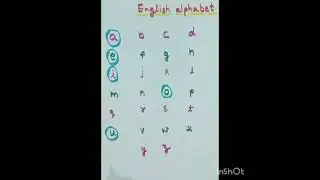 English alphabet
a b c d
e f g h
i j k l
m n o p
q r s t
u v w x
y z